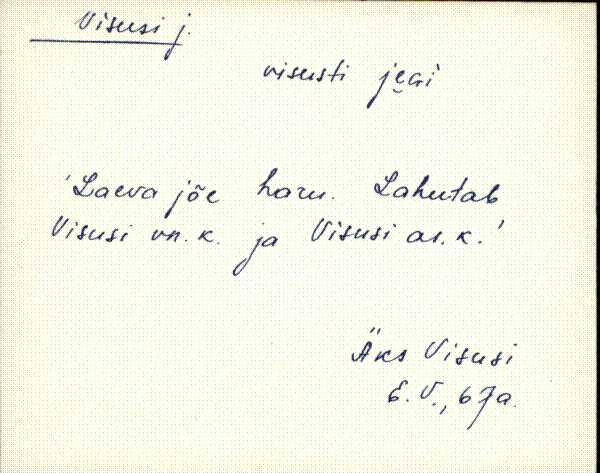 Visusi j.
visusti je̮ɢi
'Laeva jõe haru. Lahutab
Visusi vn. k. ja Visusi as. k.'
Äks Visusi
E. V., 67a.